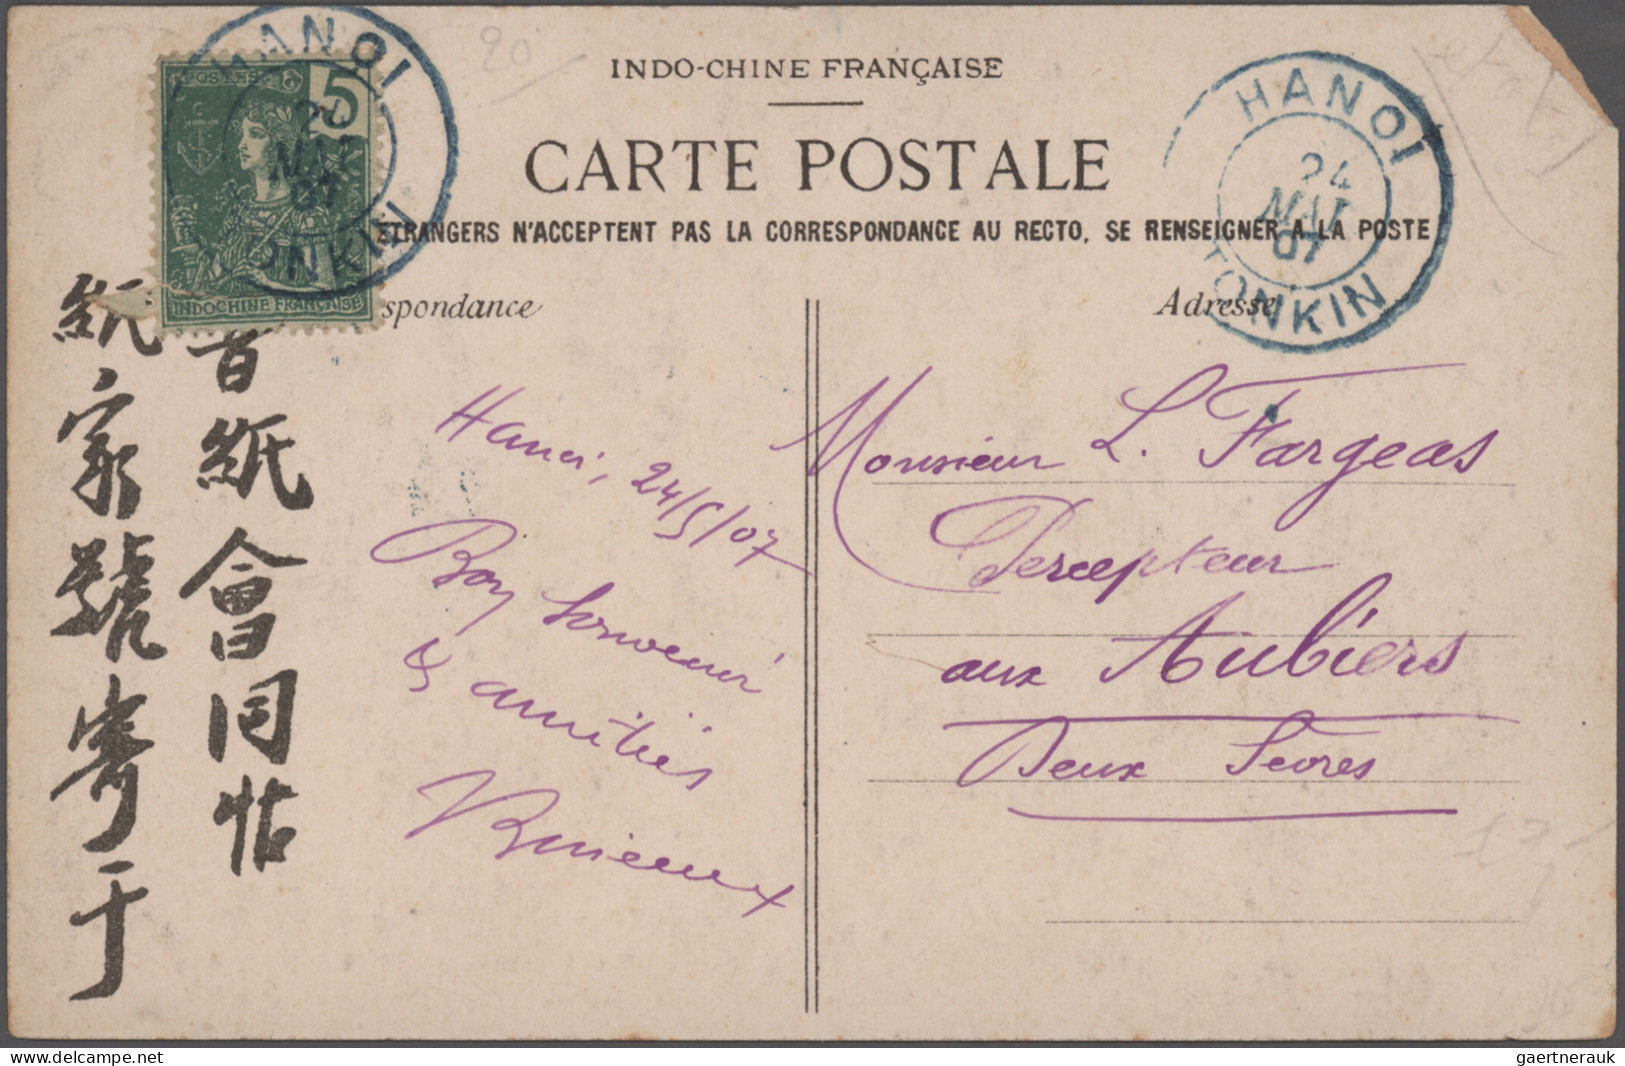 INDO-CHINE FRANÇAISE
CARTE POSTALE
ÉTRANGERS N'ACCEPTENT PAS LA CORRESPONDANCE AU RECTO, SE RENSEIGNER A LA POSTE
spondance
Adresse
HANOI
24
MAI
07
TONKIN
5
POSTES
INDOCHINE FRANÇAISE
HANOI
24
MAI
07
TONKIN
音紙會同帖
紙家號寄于
Hanoi, 24/5/07
Bon souvenir
& amitiés
Monsieur L. Fargeas
Percepteur
aux Aubiers
Deux Sèvres
20
gaertnerauk @ delcampe.net